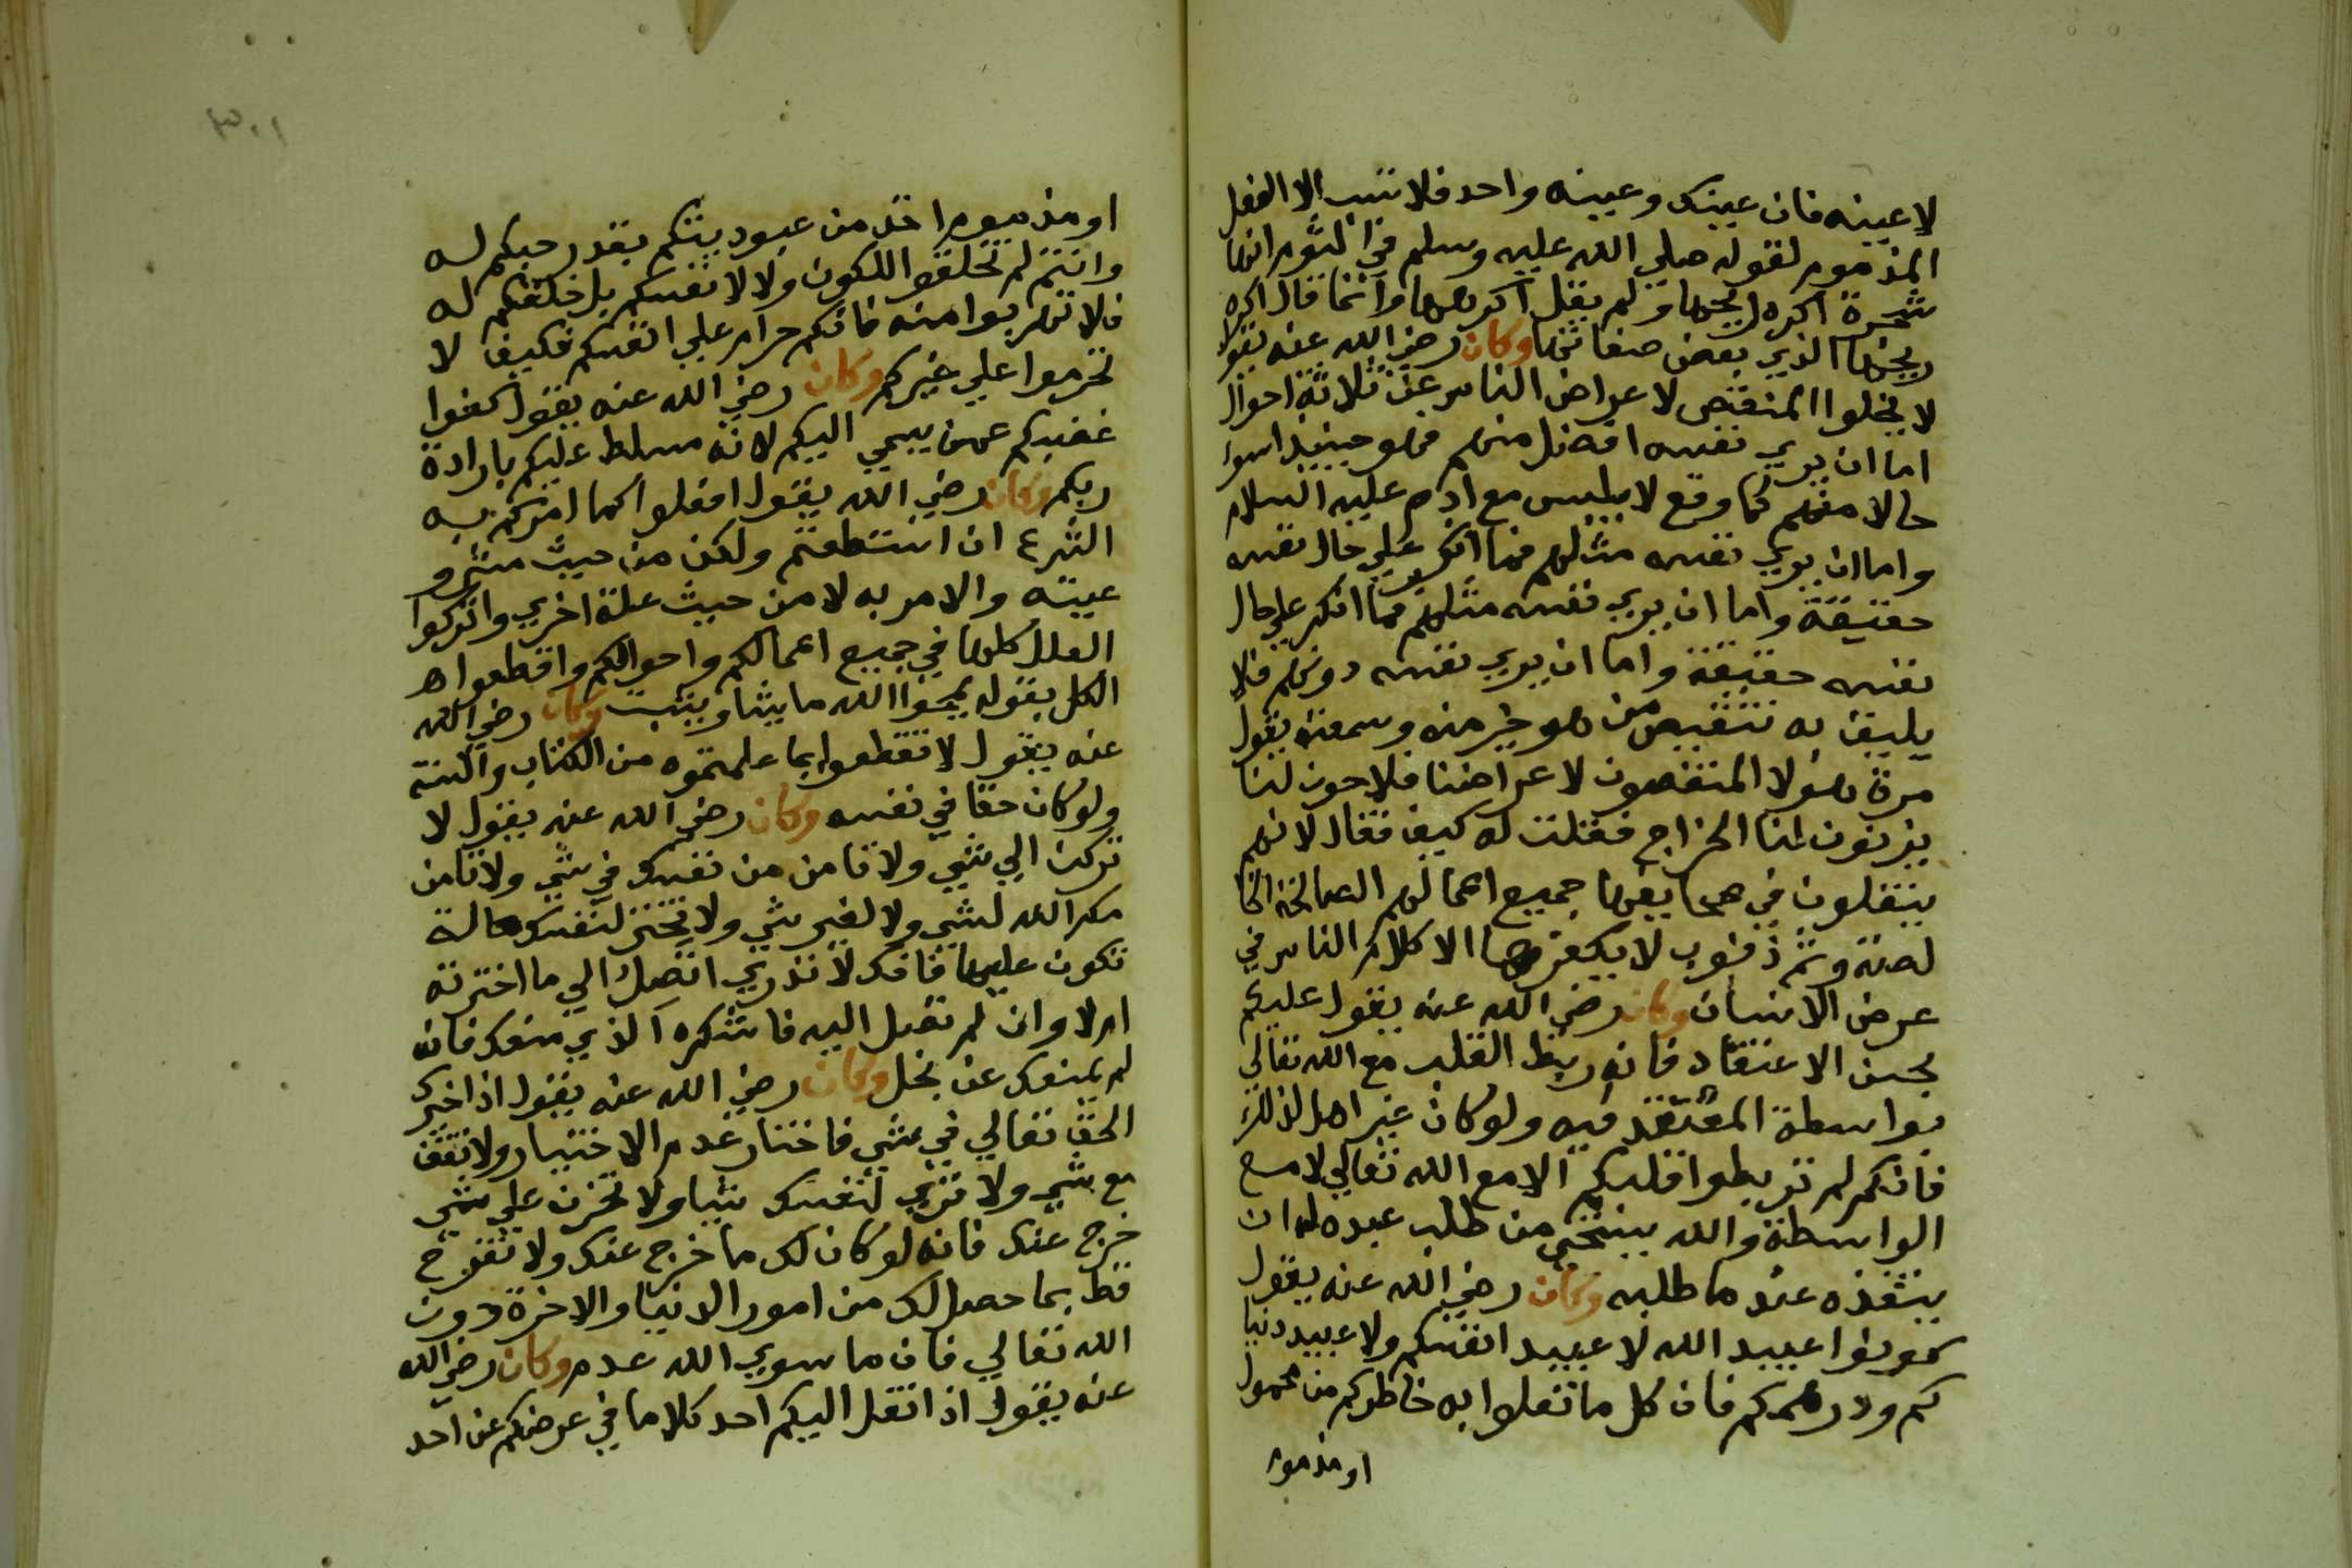 لا عينه فان عينك وعينه واحد فلا تسب الا الفعل
المذموم لقوله صلي الله عليه وسلم في الثوم انها
شجرة اكره ريحها ولم يقل اكرهها وانما قال اكره
ريحها الذي بعض صفاتها وكان رضي الله عنه يقول
لا يخلوا المنقص لاعراض الناس عن ثلاثة احوال
اما ان يري نفسه افضل منهم فهو حينيذ اسوا
حالا منهم كما وقع لابليس مع ادم عليه السلام
واما ان يري نفسه مثلهم فما انكر علي حال نفسه
حقيقة واما ان يري نفسه مثلهم فما انكر علي حال
نفسه حقيقة واما ان يري نفسه دونهم فلا
يليق به تنقيص من هو خير منه وسمعته يقول
مرة هولا المنقصون لاعراضنا فلاحون لنا
يزنون لنا الخراج فقلت له كيف فقال لانهم
ينقلون في صحايفنا جميع اعمالهم الصالحة الخا
لصة وثم ذنوب لا يكفرها الا كلام الناس في
عرض الانسان وكان رضي الله عنه يقول عليكم
بحسن الاعتقاد فانه ربط القلب مع الله تعالي
بواسطة المعتقد فيه ولو كان غير اهل لذلك
فانكم لم تربطوا قلبكم الا مع الله تعالي لا مع
الواسطة والله يستحي من طلب عبده له ان
ينفذه عند ما طلبه وكان رضي الله عنه يقول
كونوا عبيد الله لا عبيد انفسكم ولا عبيد دنيا
كم ودرهمكم فان كل ما تعلوا به خاطركم من محمول
او مذموم
او مذموم اخذ من عبوديتكم بقدر حبكم له
وانتم لم تخلقوا للكون ولا لانفسكم بل خلقكم له
فلا تهربوا منه فانكم حرام علي انفسكم فكيف لا
تحرموا علي غيركم وكان رضي الله عنه يقول كفوا
غضبكم عمن يسي اليكم لانه مسلط عليكم بارادة
ربكم وكان رضي الله يقول افعلوا كما امركم به
الشرع ان استطعتم ولكن من حيث مشرو
عيته والامر به لا من حيث علة اخري واتركوا
العلل كلها في جميع اعمالكم واحوالكم واقطعوا
الكل بقوله يمحوا الله ما يشا ويثبت وكان رضي الله
عنه يقول لا تقطعوا بما علمتموه من الكتاب والسنة
ولو كان حقا في نفسه وكان رضي الله عنه يقول لا
تركن الي شي ولا تامن من نفسك في شي ولا تامن
مكر الله لشي ولا لغير شي ولا تختر لنفسك حالة
تكون عليها فانك لا تدري اتصل الي ما اخترته
ام لا وان لم تصل اليه فاشكره الذي منعك فانه
لم يمنعك عن بخل وكان رضي الله عنه يقول اذا خيرك
الحق تعالي في شي فاختار عدم الاختيار ولا تقف
مع شي ولا تري لنفسك شيا ولا تحزن علي شي
خرج عنك فانه لو كان لك ما خرج عنك ولا تفرح
قط بما حصل لك من امور الدنيا والاخرة دون
الله تعالي فان ما سوي الله عدم وكان رضي الله
عنه يقول اذا نقل اليكم احد كلاما في عرضكم عن احد